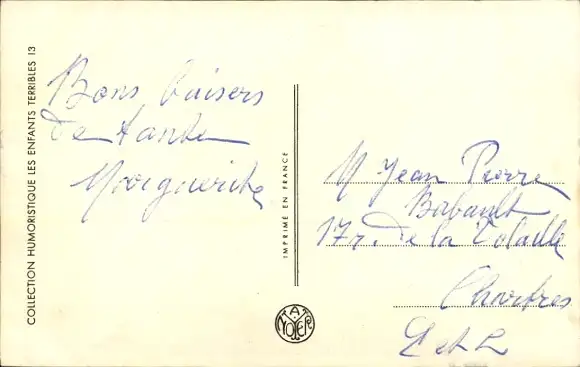 COLLECTION HUMORISTIQUE LES ENFANTS TERRIBLES 13
Bons baisers
de tante
Marguerite
IMPRIMÉ EN FRANCE
M Jean Pierre
Babault
17 r. de la
Chartres
E et L